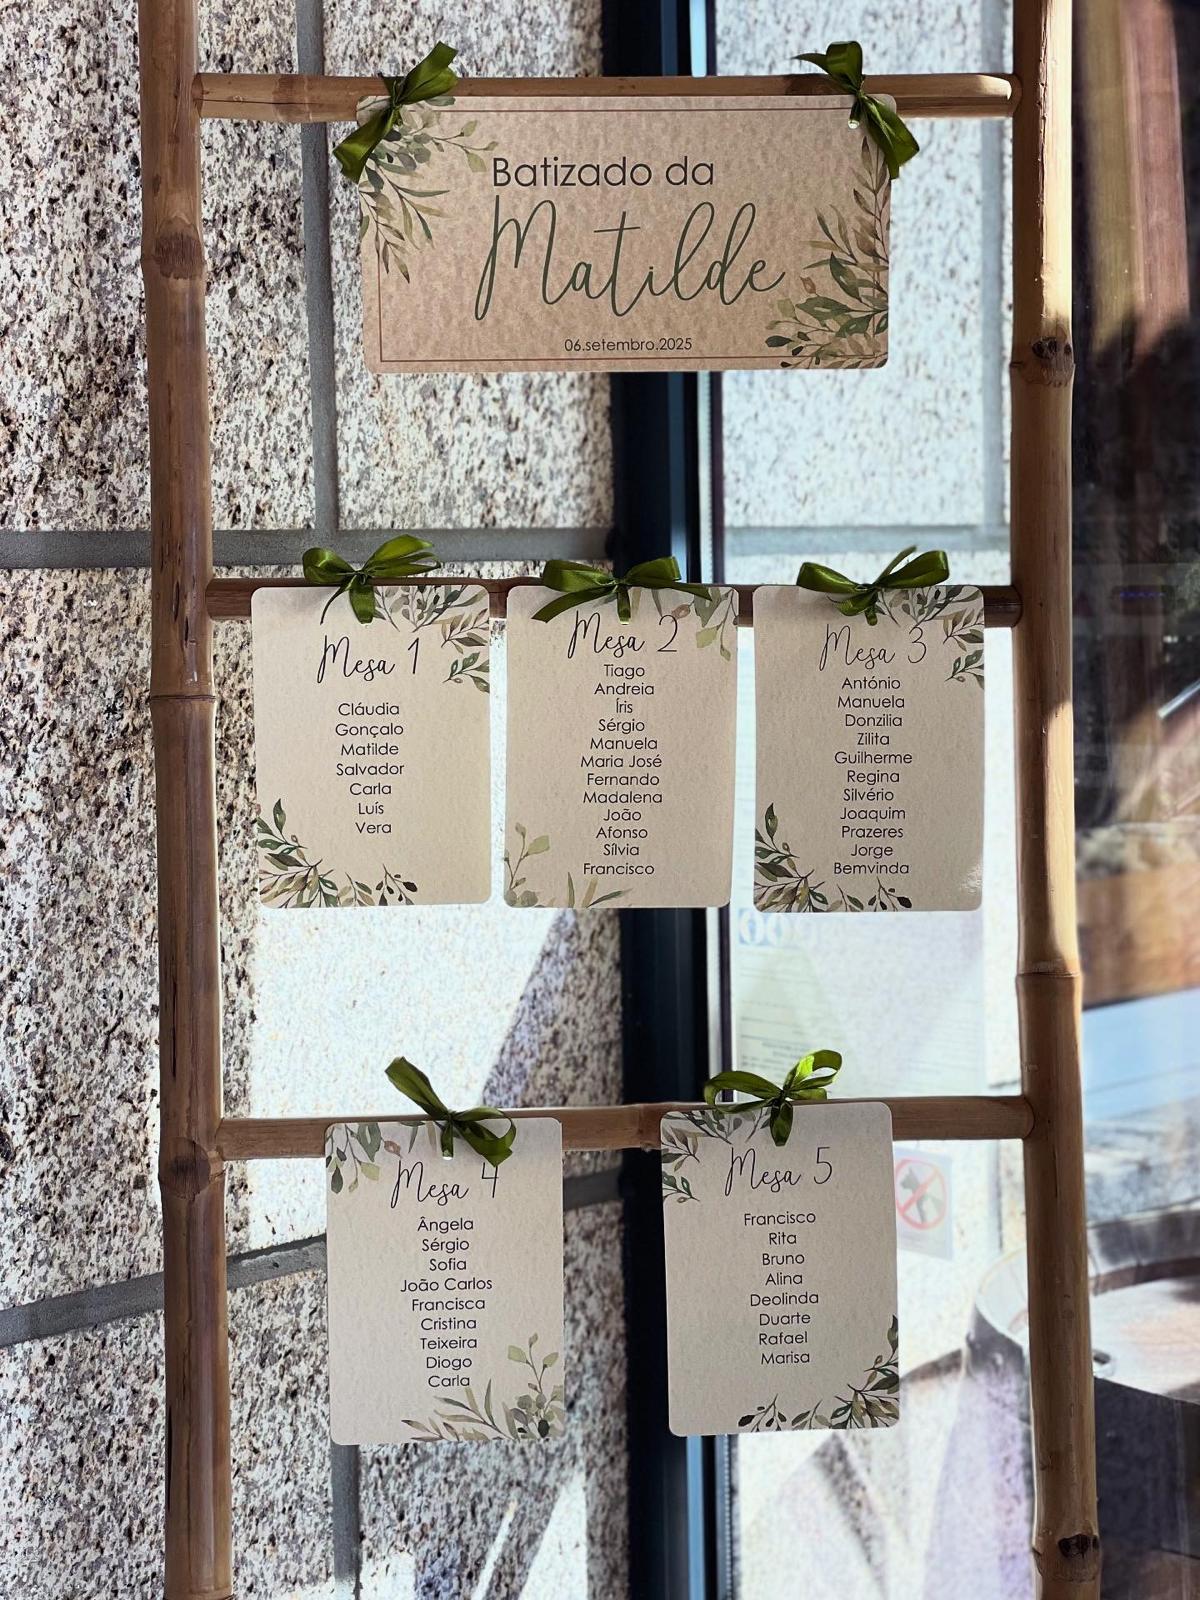 Batizado da
Matilde
06.setembro.2025
Mesa 1
Cláudia
Gonçalo
Matilde
Salvador
Carla
Luís
Vera
Mesa 2
Tiago
Andreia
Íris
Sérgio
Manuela
Maria José
Fernando
Madalena
João
Afonso
Sílvia
Francisco
Mesa 3
António
Manuela
Donzilia
Zilita
Guilherme
Regina
Silvério
Joaquim
Prazeres
Jorge
Bemvinda
Mesa 4
Ângela
Sérgio
Sofia
João Carlos
Francisca
Cristina
Teixeira
Diogo
Carla
Mesa 5
Francisco
Rita
Bruno
Alina
Deolinda
Duarte
Rafael
Marisa